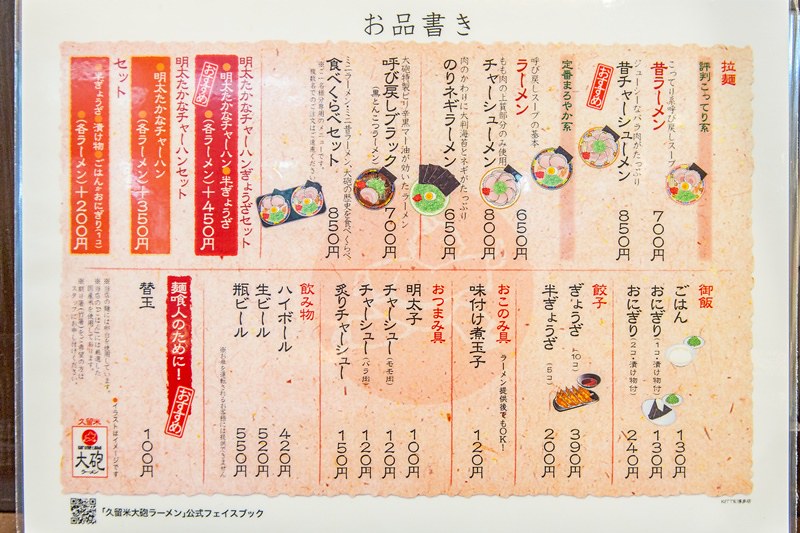 お品書き
拉麺
評判こってり系
昔ラーメン
こってり系呼び戻しスープ
700円
昔チャーシューメン
ジューシーなバラ肉がたっぷり
おすすめ
850円
定番まろやか系
ラーメン
呼び戻しスープの基本
650円
チャーシューメン
もも肉の上質部分のみ使用
800円
のりネギラーメン
肉のかわりに大判海苔とネギがたっぷり
650円
呼び戻しブラック
(黒とんこつラーメン)
大砲特製ピリ辛黒マー油が効いたラーメン
700円
食べくらべセット
ミニラーメン・ミニ昔ラーメン、大砲の歴史を食べくらべ
850円
明太たかなチャーハンぎょうざセット
おすすめ
●明太たかなチャーハン●半ぎょうざ
●(各ラーメン+450円)
明太たかなチャーハンセット
●明太たかなチャーハン
●(各ラーメン+350円)
セット
●半ぎょうざ●漬け物●ごはんorおにぎり(1コ)
●(各ラーメン+200円)
御飯
ごはん
130円
おにぎり(1コ・漬け物付)
130円
おにぎり(2コ・漬け物付)
240円
餃子
ぎょうざ(10コ)
390円
半ぎょうざ(5コ)
200円
おこのみ具
ラーメン提供後でもOK!
味付け煮玉子
120円
おつまみ具
明太子
100円
チャーシュー(モモ出)
120円
チャーシュー(バラ出)
120円
炙りチャーシュー
150円
飲み物
ハイボール
420円
生ビール
520円
瓶ビール
550円
※お車を運転されるお客様には提供できません
麺喰人のために!
おすすめ
替玉
100円
●イラストはイメージです
久留米
大砲
ラーメン
「久留米大砲ラーメン」公式フェイスブック